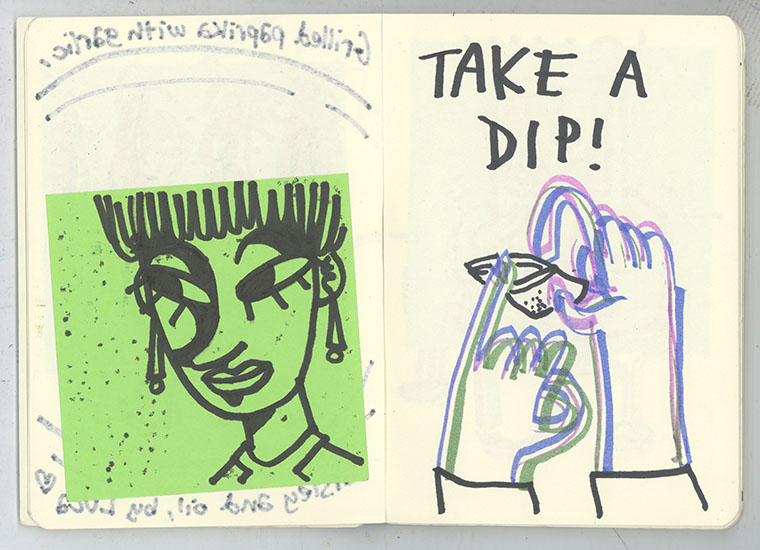 Grilled paprika with garlic,
and oil, by Luca
TAKE A
DIP!